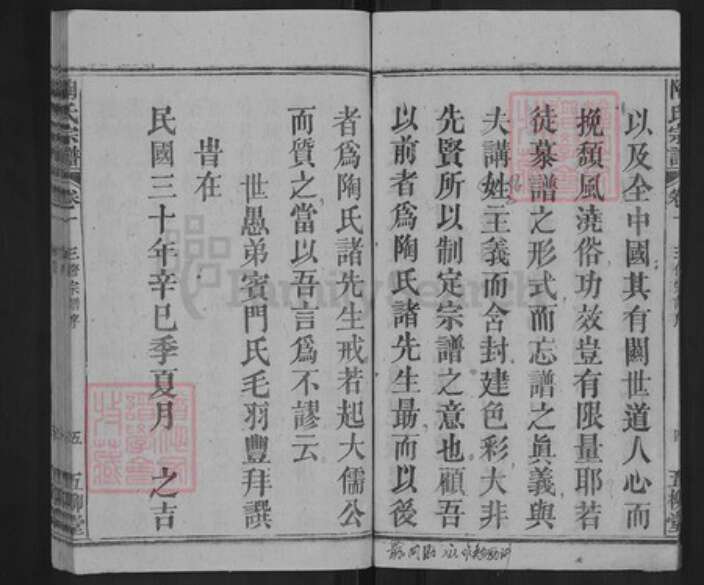 以及全中國其有關世道人心而
挽頹風澆俗功效豈有限量耶若
徒慕譜之形式而忘譜之眞義與
夫講姓主義而含封建色彩大非
先賢所以制定宗譜之意也顧吾
以前者爲陶氏諸先生勗而以後
者爲陶氏諸先生戒若起大儒公
而質之當以吾言爲不謬云
世愚弟賓門氏毛羽豐拜譔
旹在
民國三十年辛巳季夏月 之吉
陶氏宗譜 卷一 三修宗譜序 五 五柳堂
FamilySearch